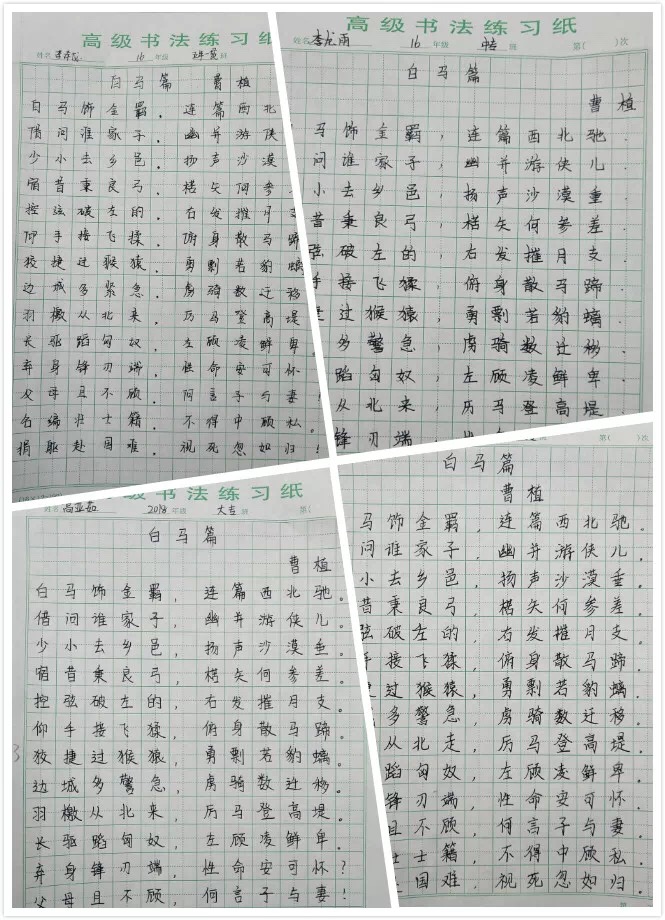 高级书法练习纸
姓名 16 年级 班
白马篇 曹植
白马饰金羁，连篇西北
借问谁家子，幽并游侠
少小去乡邑，扬声沙漠
宿昔秉良弓，楛矢何参
控弦破左的，右发摧月支
仰手接飞猱，俯身散马蹄
狡捷过猴猿，勇剽若豹螭
边城多紧急，虏骑数迁移
羽檄从北来，厉马登高堤
长驱蹈匈奴，左顾凌鲜卑
弃身锋刃端，性命安可怀
父母且不顾，何言子与妻！
名编壮士籍，不得中顾私。
捐躯赴国难，视死忽如归！
高级书法练习纸
姓名 李龙雨 16 年级 中专 班 第( )次
白马篇
曹植
马饰金羁，连篇西北驰.
问谁家子，幽并游侠儿
小去乡邑，扬声沙漠垂.
昔秉良弓，楛矢何参差.
弦破左的，右发摧月支.
手接飞猱，俯身散马蹄.
过猴猿，勇剽若豹螭.
多警急，虏骑数迁移.
蹈匈奴，左顾凌鲜卑.
从北来，厉马登高堤.
锋刃端，
级书法练习纸
姓名 高亚茹 2018 年级 大专 班 第(
白马篇
曹植
白马饰金羁，连篇西北驰。
借问谁家子，幽并游侠儿。
少小去乡邑，扬声沙漠垂。
宿昔秉良弓，楛矢何参差。
控弦破左的，右发摧月支。
仰手接飞猱，俯身散马蹄。
狡捷过猴猿，勇剽若豹螭。
边城多警急，虏骑数迁移。
羽檄从北来，厉马登高堤。
长驱蹈匈奴，左顾凌鲜卑。
弃身锋刃端，性命安可怀？
父母且不顾，何言子与妻！
班 第( )次
白马篇
曹植
马饰金羁，连篇西北驰。
问谁家子，幽并游侠儿。
小去乡邑，扬声沙漠垂。
昔秉良弓，楛矢何参差。
弦破左的，右发摧月支。
手接飞猱，俯身散马蹄。
过猴猿，勇剽若豹螭。
多警急，虏骑数迁移。
从北走，厉马登高堤。
蹈匈奴，左顾凌鲜卑。
锋刃端，性命安可怀.
且不顾，何言子与妻.
士籍，不得中顾私.
国难.视死忽如归.